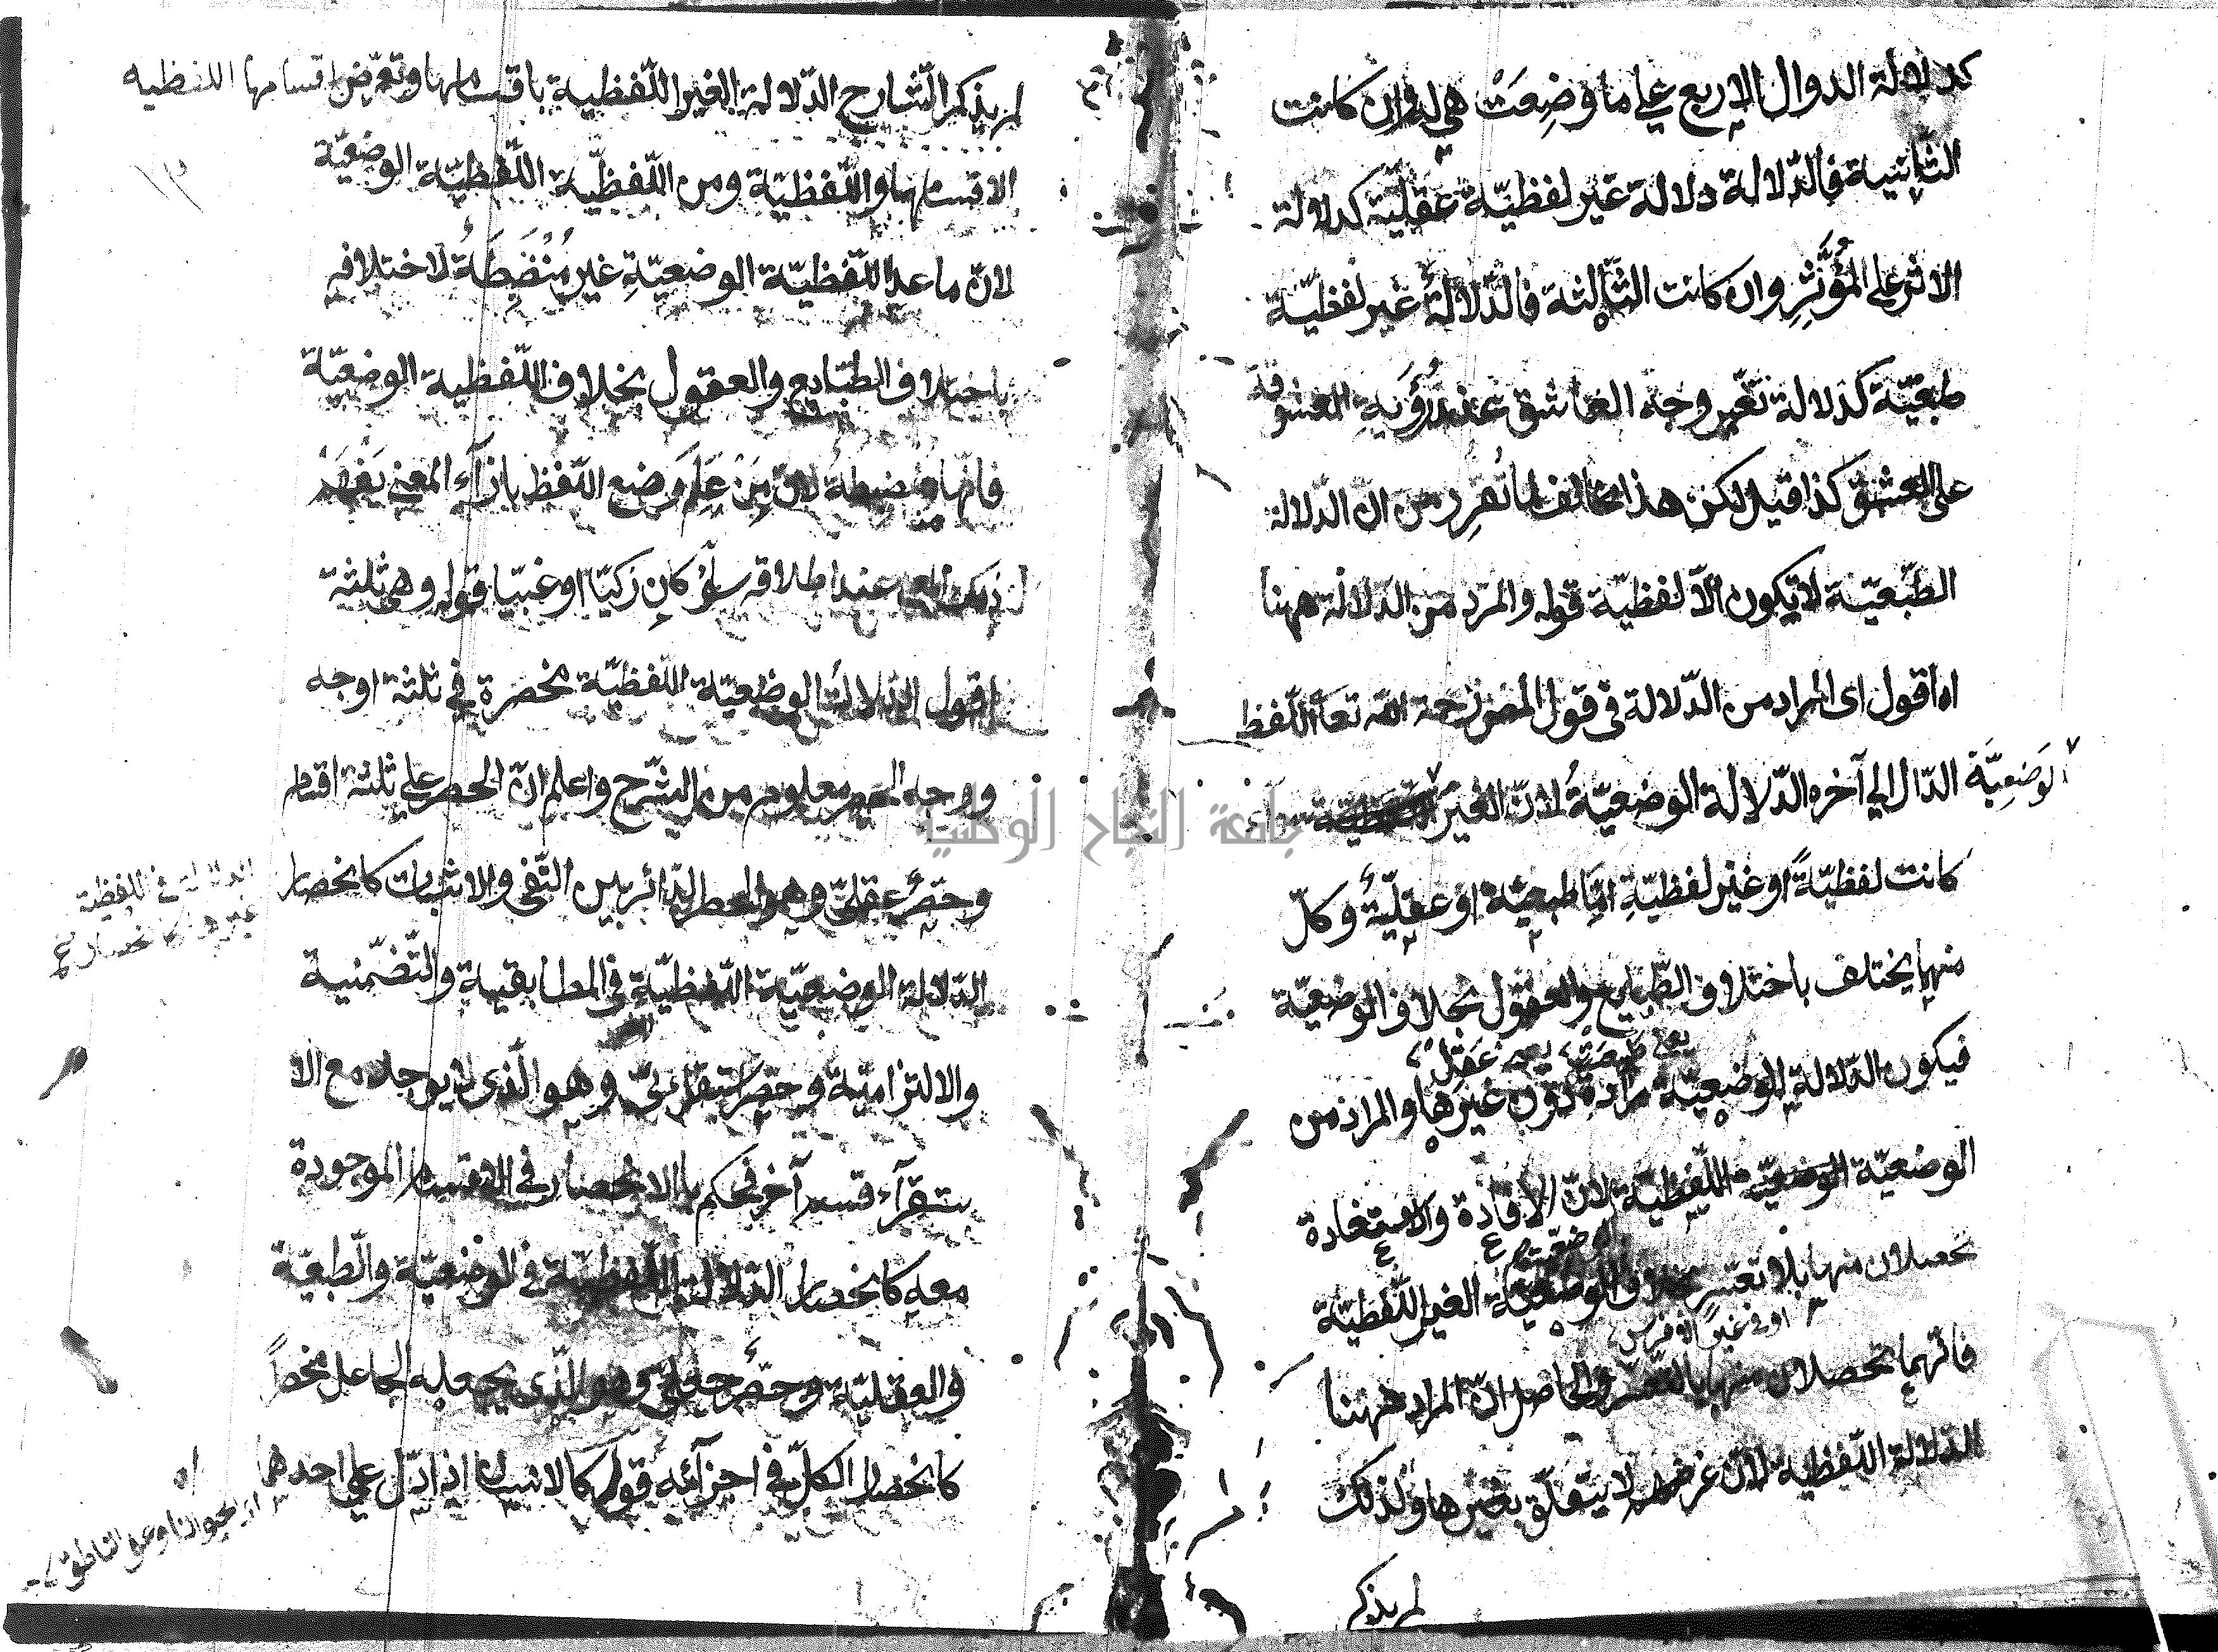 كدلالة الدوال الاربع علي ما وضِعَتْ هي له وان كانت
الثانية فالدّلالة دلالة غير لفظيّة عقليّة كدلالة
الاثر علي المؤثّر وان كانت الثالثة فالدّلالة غير لفظيّة
طبعيّة كدلالة تغيّر وجه العاشق عند رؤية المعشوقة
علي العشق كذا قيل لكن هذا مخالف لما تقرر من ان الدّلالة
الطّبعيّة لا تكون الّا لفظيّة قوله والمرد من الدّلالة ههنا
اه اقول اى المراد من الدّلالة في قول المص رحمة الله تعا اللّفظ
الدّال الي آخره الدّلالة الوضعيّة لانّ الغير الوَضعِيَّة سوآء
كانت لفظيّةً او غير لفظيّةِ امّا طبعيّة او عقليّةٌ وكلّ
منهما يختلف باختلاف الطّبايع والعقول بخلاف الوضعيّة
يعنى طبعية يعنى عقلى
فيكون الدّلالة الوضعيّة مرادة دون غيرها والمراد من
الوضعيّة الوضعيّة اللّفظيّة لانّ الافادة والاستفادة
تحصلان منها بلا تعسّر بخلاف الوضعيّة الغير اللّفظيّة
فانّهما تحصلان منها بالتّعسّر والحاصل انّ المراد ههنا
الدّلالة اللّفظيّة لانّ غرضهم لا يتعلّق بغيرها ولذلك
لم يذكر
لم يذكر الشّارح الدّلالة الغير اللّفظية باقسامها وتعرّض اقسامها اللفظيه
الاقسامها واللّفظيّة ومن اللّفظيّة اللّفظيّة الوضعيّة
لانّ ما عدا اللّفظيّة الوضعيّةِ غير مُنْضَبِطَةُ لاختلافه
باختلاف الطبّايع والعقول بخلاف اللّفظية الوضعيّة
فانّها منضبطة لانّ مَنْ عَلِمَ وضع اللّفظ بازآء المعنى يَفْهَمْ
ذلك المعنى عند اطلاقه سوآء كان زكيّا او غبيّا قوله وهى ثلثة
اقول الدّلالة الوضعيّة اللّفظيّة منحصرة في ثلثة اوجه
ووجه الحصر معلوم من الشّرح واعلم انّ الحصر علي ثلثة اقسام
وحصرٌ عقليّ وهو الحصر الدّائر بين النّفى والاثبات كانحصار
الدّلالة في اللفظية
غيرها كانحصار
الدّلالة الوضعيّة اللّفظيّةِ في المطابقية والتّضمّنية
والالتزاميّة وحصر استقرائىّ وهو الّذى لا يوجد مع الا
ستقرآء قسم آخر فيحكم بالانحصار في الاقسام الموجودة
معه كانحصار الدّلالة اللّفظيّة في الوضعيّة والّطبعيّة
والعقليّة وحصر جعليّ وهو الّذى يجعله الجاعل منحصراً
كانحصار الكلّ في اجزآئه قوله كالانسان اذا دلّ علي احدهما
اى الحيوان او على الناطق
جامعة النجاح الوطنية